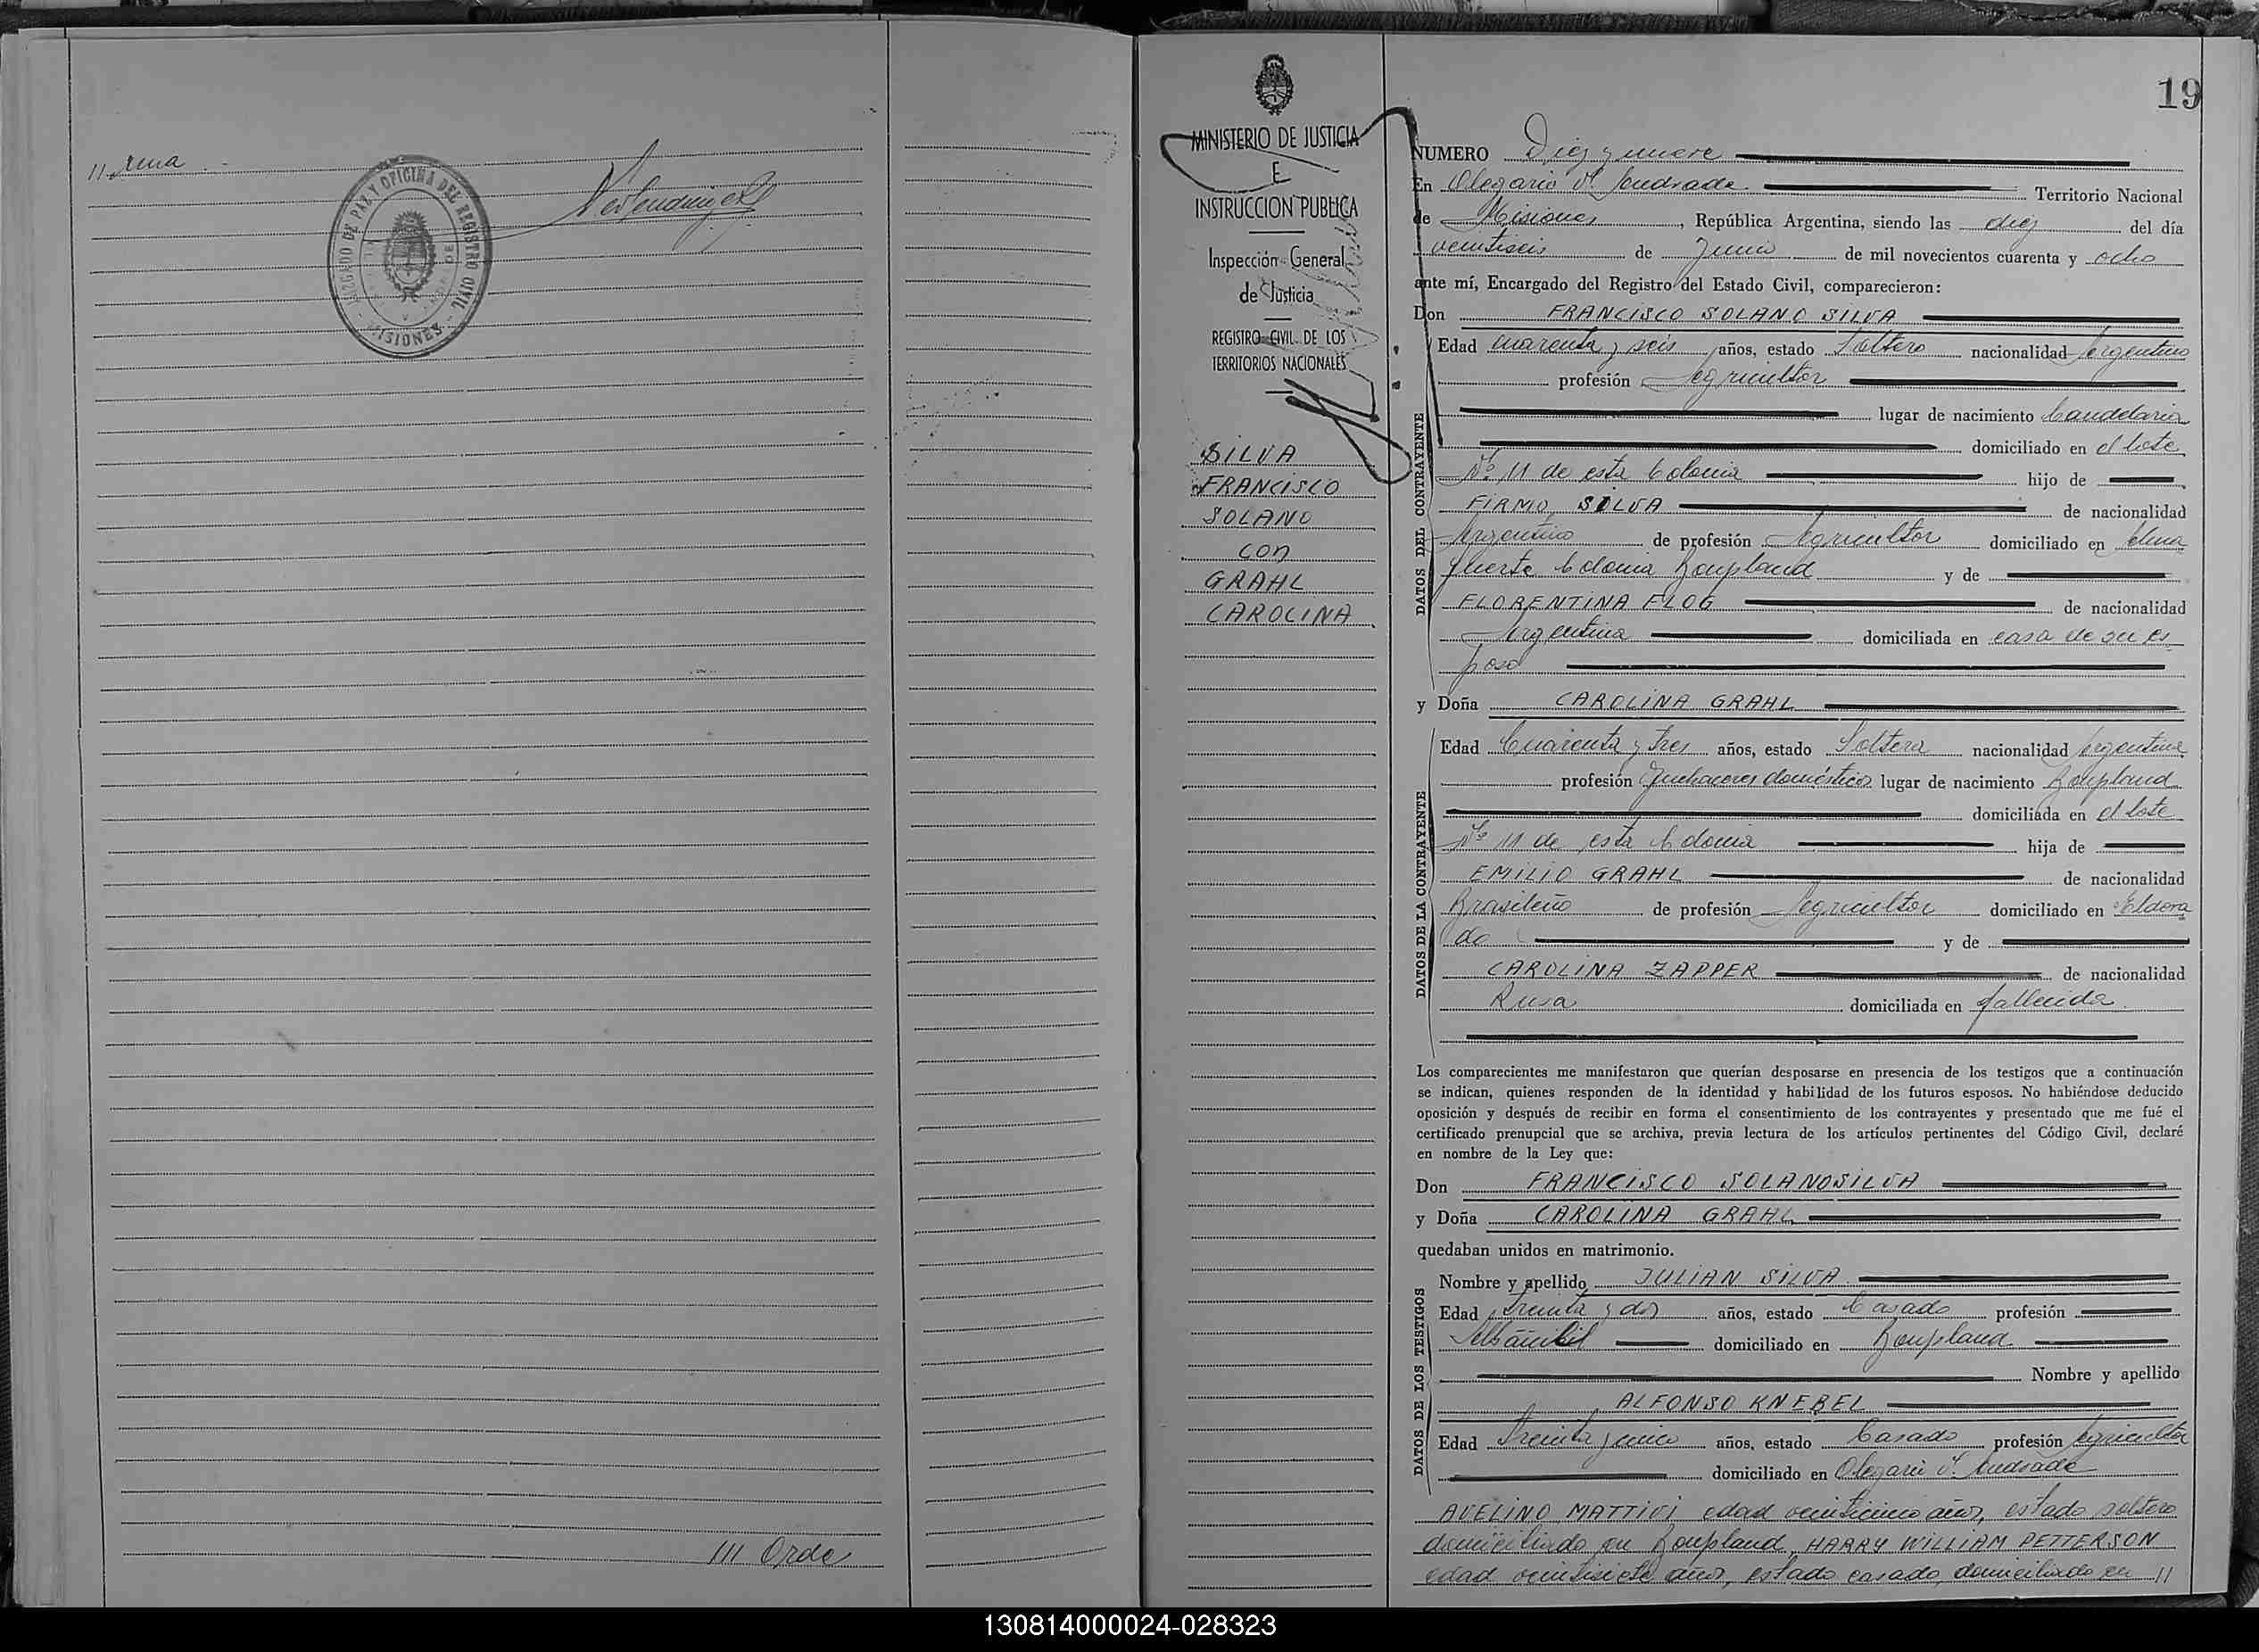 11 xma.
JUZGADO DE PAZ Y OFICINA DEL REGISTRO CIVIL
- MISIONES -
III Orde
MINISTERIO DE JUSTICIA
E
INSTRUCCION PUBLICA
Inspección General
de Justicia
REGISTRO CIVIL DE LOS
TERRITORIOS NACIONALES
SILVA
FRANCISCO
SOLANO
con
GRAHL
CAROLINA
19
NUMERO Diez y nueve
En Olegario V. Andrade Territorio Nacional
de Misiones, República Argentina, siendo las diez del día
veintiseis de Junio de mil novecientos cuarenta y ocho
ante mí, Encargado del Registro del Estado Civil, comparecieron:
Don FRANCISCO SOLANO SILVA
Edad cuarenta y seis años, estado Soltero nacionalidad Argentino
profesión Agricultor
lugar de nacimiento Candelaria
domiciliado en el lote
Nº 11 de esta Colonia hijo de
FIRMO SILVA de nacionalidad
Argentino de profesión Agricultor domiciliado en
Colonia Bonpland y de
FLORENTINA FLOG de nacionalidad
Argentina domiciliada en casa de su es
poso
DATOS DEL CONTRAYENTE
y Doña CAROLINA GRAHL
Edad Cuarenta y tres años, estado Soltera nacionalidad Argentina
profesión Quehaceres domésticos lugar de nacimiento Bonpland
domiciliada en el lote
Nº 11 de esta Colonia hija de
EMILIO GRAHL de nacionalidad
Brasileño de profesión Agricultor domiciliado en Eldora
do y de
CAROLINA ZAPPER de nacionalidad
Rusa domiciliada en fallecida
DATOS DE LA CONTRAYENTE
Los comparecientes me manifestaron que querían desposarse en presencia de los testigos que a continuación
se indican, quienes responden de la identidad y habilidad de los futuros esposos. No habiéndose deducido
oposición y después de recibir en forma el consentimiento de los contrayentes y presentado que me fué el
certificado prenupcial que se archiva, previa lectura de los artículos pertinentes del Código Civil, declaré
en nombre de la Ley que:
Don FRANCISCO SOLANO SILVA
y Doña CAROLINA GRAHL
quedaban unidos en matrimonio.
Nombre y apellido JULIAN SILVA
Edad treinta y dos años, estado Casado profesión
Albañil domiciliado en Bonpland
Nombre y apellido
ALFONSO KNEBEL
Edad Treinta y cinco años, estado Casado profesión Agricultor
domiciliado en Olegario V. Andrade
DATOS DE LOS TESTIGOS
AVELINO MATTIVI edad veinticinco años, estado soltero
domiciliado en Bonpland, HARRY WILLIAM PETTERSON
edad veintisiete años, estado casado, domiciliado en 11
130814000024-028323